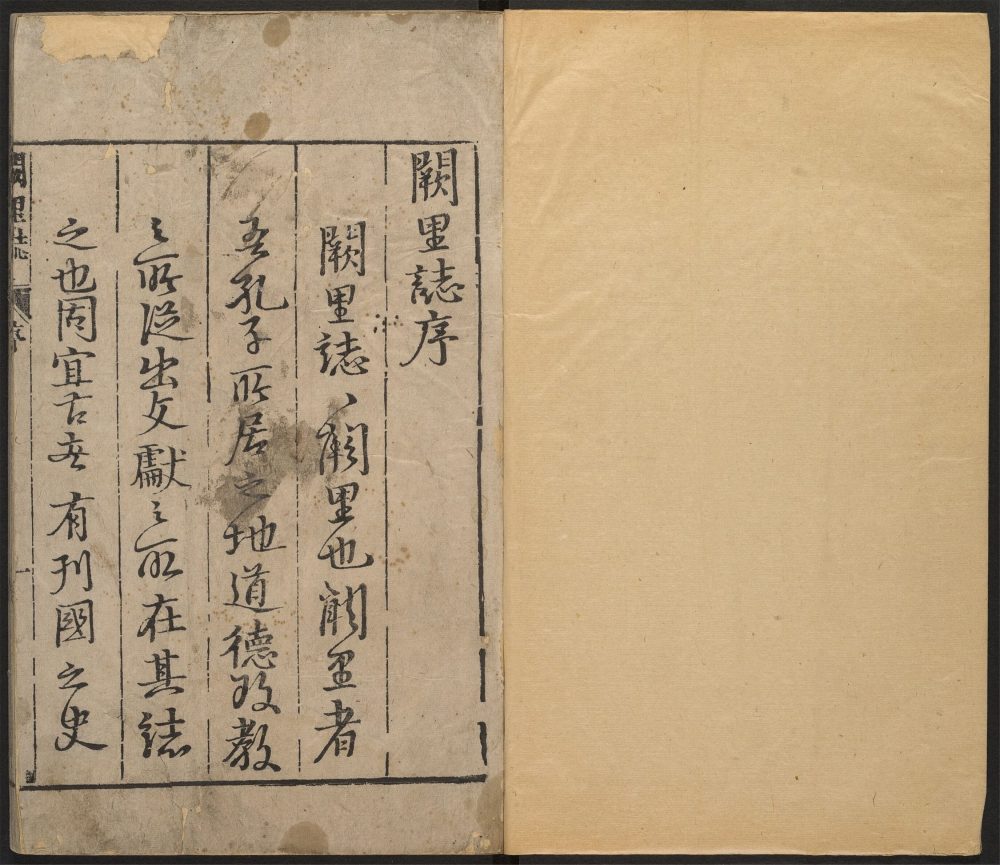 闕里誌序
闕里誌、闕里也闕里者
吾孔子所居之地道德政教
之所從出文獻之所在其誌
之也固宜古者有列國之史
闕里誌
序
一